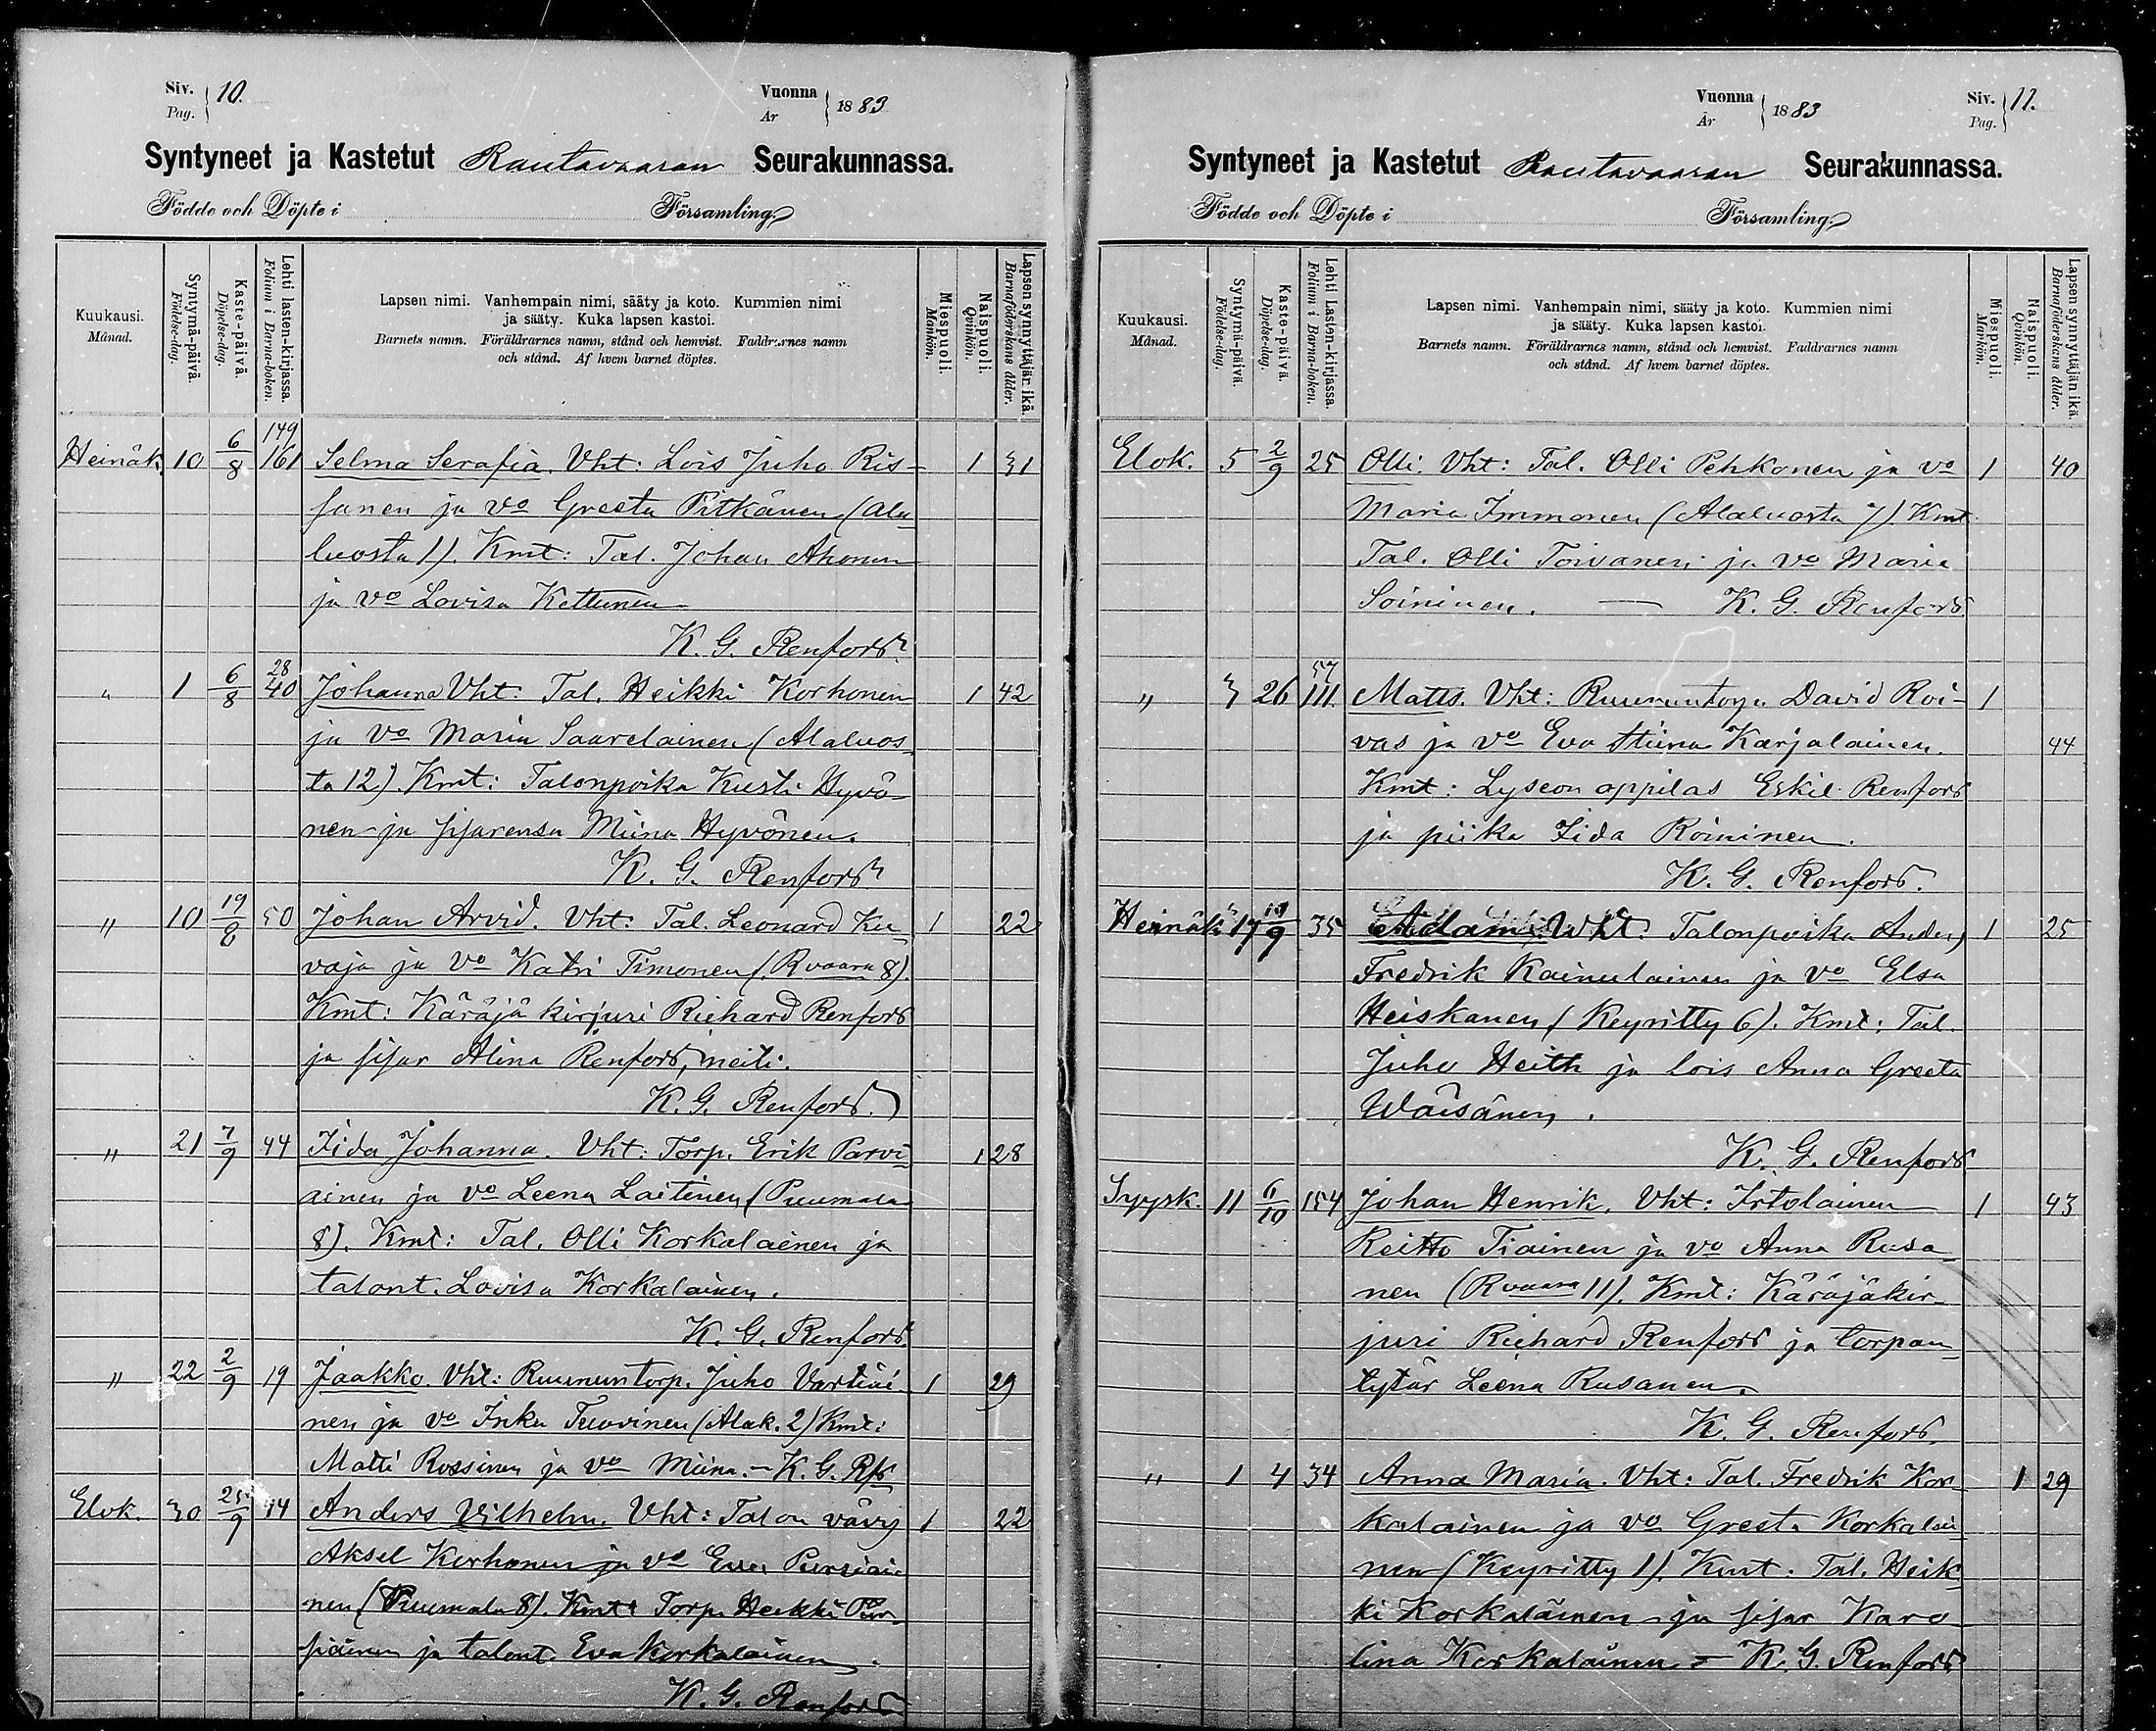 Siv. Pag. 10.
Vuonna År 1883
Syntyneet ja Kastetut Rautavaaran Seurakunnassa.
Födde och Döpte i Församling.
Kuukausi. Månad.
Syntymä-päivä. Födelse-dag.
Kaste-päivä. Döpelse-dag.
Lehti lasten-kirjassa. Folium i Barna-boken.
Lapsen nimi. Vanhempain nimi, sääty ja koto. Kummien nimi
ja sääty. Kuka lapsen kastoi.
Barnets namn. Föräldrarnes namn, stånd och hemvist. Faddrarnes namn
och stånd. Af hvem barnet döptes.
Miespuoli. Mankön.
Naispuoli. Qvinkön.
Lapsen synnyttäjän ikä. Barnaföderskans ålder.
Heinäk. 10 6/8 149 161 Selma Serafia. Vht: Lois Juho Ris- 1 31
sanen ja vo Greeta Pitkänen (Ala-
luosta 1). Kmt: Tal. Johan Ahonen
ja vo Lovisa Kettunen
K. G. Renfors
" 1 6/8 28 40 Johanna Vht: Tal. Heikki Korhonen 1 42
ja vo Maria Saarelainen (Alaluos-
ta 12). Kmt: Talonpoika Kusti Hyvö-
nen ja sisarensa Miina Hyvönen.
K. G. Renfors
" 10 19/8 50 Johan Arvid. Vht: Tal. Leonard Ku- 1 22
vaja ja vo Katri Timonen (Rvaara 8).
Kmt: Käräjä kirjuri Richard Renfors
ja sisar Alina Renfors, neiti.
K. G. Renfors.
" 21 7/9 44 Iida Johanna. Vht: Torp. Erik Parvi- 1 28
ainen ja vo Leena Laitinen (Puumala
8). Kmt: Tal. Olli Korkalainen ja
talont. Lovisa Korkalainen.
K. G. Renfors.
" 22 2/9 19 Jaakko. Vht: Ruunun torp. Juho Vartiai- 1 29
nen ja vo Inka Tuovinen (Alak. 2) Kmt:
Matti Rossinen ja vo Miina. - K. G. Rfs
Elok. 30 25/9 44 Anders Vilhelm. Vht: Talon vävy 1 22
Aksel Korhonen ja vo Eva Pursiai-
nen (Puumala 8). Kmt: Torp. Heikki Pur-
siainen ja talont. Eva Korkalainen.
K. G. Renfors
Vuonna År 1883
Siv. Pag. 11.
Syntyneet ja Kastetut Rautavaaran Seurakunnassa.
Födde och Döpte i Församling.
Kuukausi. Månad.
Syntymä-päivä. Födelse-dag.
Kaste-päivä. Döpelse-dag.
Lehti Lasten-kirjassa. Folium i Barna-boken.
Lapsen nimi. Vanhempain nimi, sääty ja koto. Kummien nimi
ja sääty. Kuka lapsen kastoi.
Barnets namn. Föräldrarnes namn, stånd och hemvist. Faddrarnes namn
och stånd. Af hvem barnet döptes.
Miespuoli. Mankön.
Naispuoli. Qvinkön.
Lapsen synnyttäjän ikä. Barnaföderskans ålder.
Elok. 5 2/9 25 Olli. Vht: Tal. Olli Pehkonen ja vo 1 40
Maria Immonen (Alaluosta 7). Kmt
Tal. Olli Toivanen ja vo Maria
Soininen. — K. G. Renfors.
" 3 26 57 111. Matts. Vht: Ruununtorp. David Roi- 1
vas ja vo Eva Stiina Karjalainen. 44
Kmt: Lyseon oppilas Eskil Renfors
ja piika Iida Roininen.
K. G. Renfors.
Heinäk. 17 /9 35 Adam. Vht: Talonpoika Anders 1 25
Fredrik Kainulainen ja vo Elsa
Heiskanen (Keyritty 6). Kmt: Tal.
Juho Heith ja lois Anna Greeta
Wäisänen.
K. G. Renfors
Syysk. 11 6/10 154 Johan Henrik. Vht: Irtolainen 1 43
Reitto Tiainen ja vo Anna Rusa-
nen (Rvaara 11). Kmt: Käräjäkir-
juri Richard Renfors ja torpan-
tytär Leena Rusanen.
K. G. Renfors.
" 1 4 34 Anna Maria. Vht: Tal. Fredrik Kor- 1 29
kalainen ja vo Greeta Korkalai-
nen (Keyritty 1). Kmt: Tal. Heik-
ki Korkalainen ja sisar Karo-
lina Korkalainen - K. G. Renfors